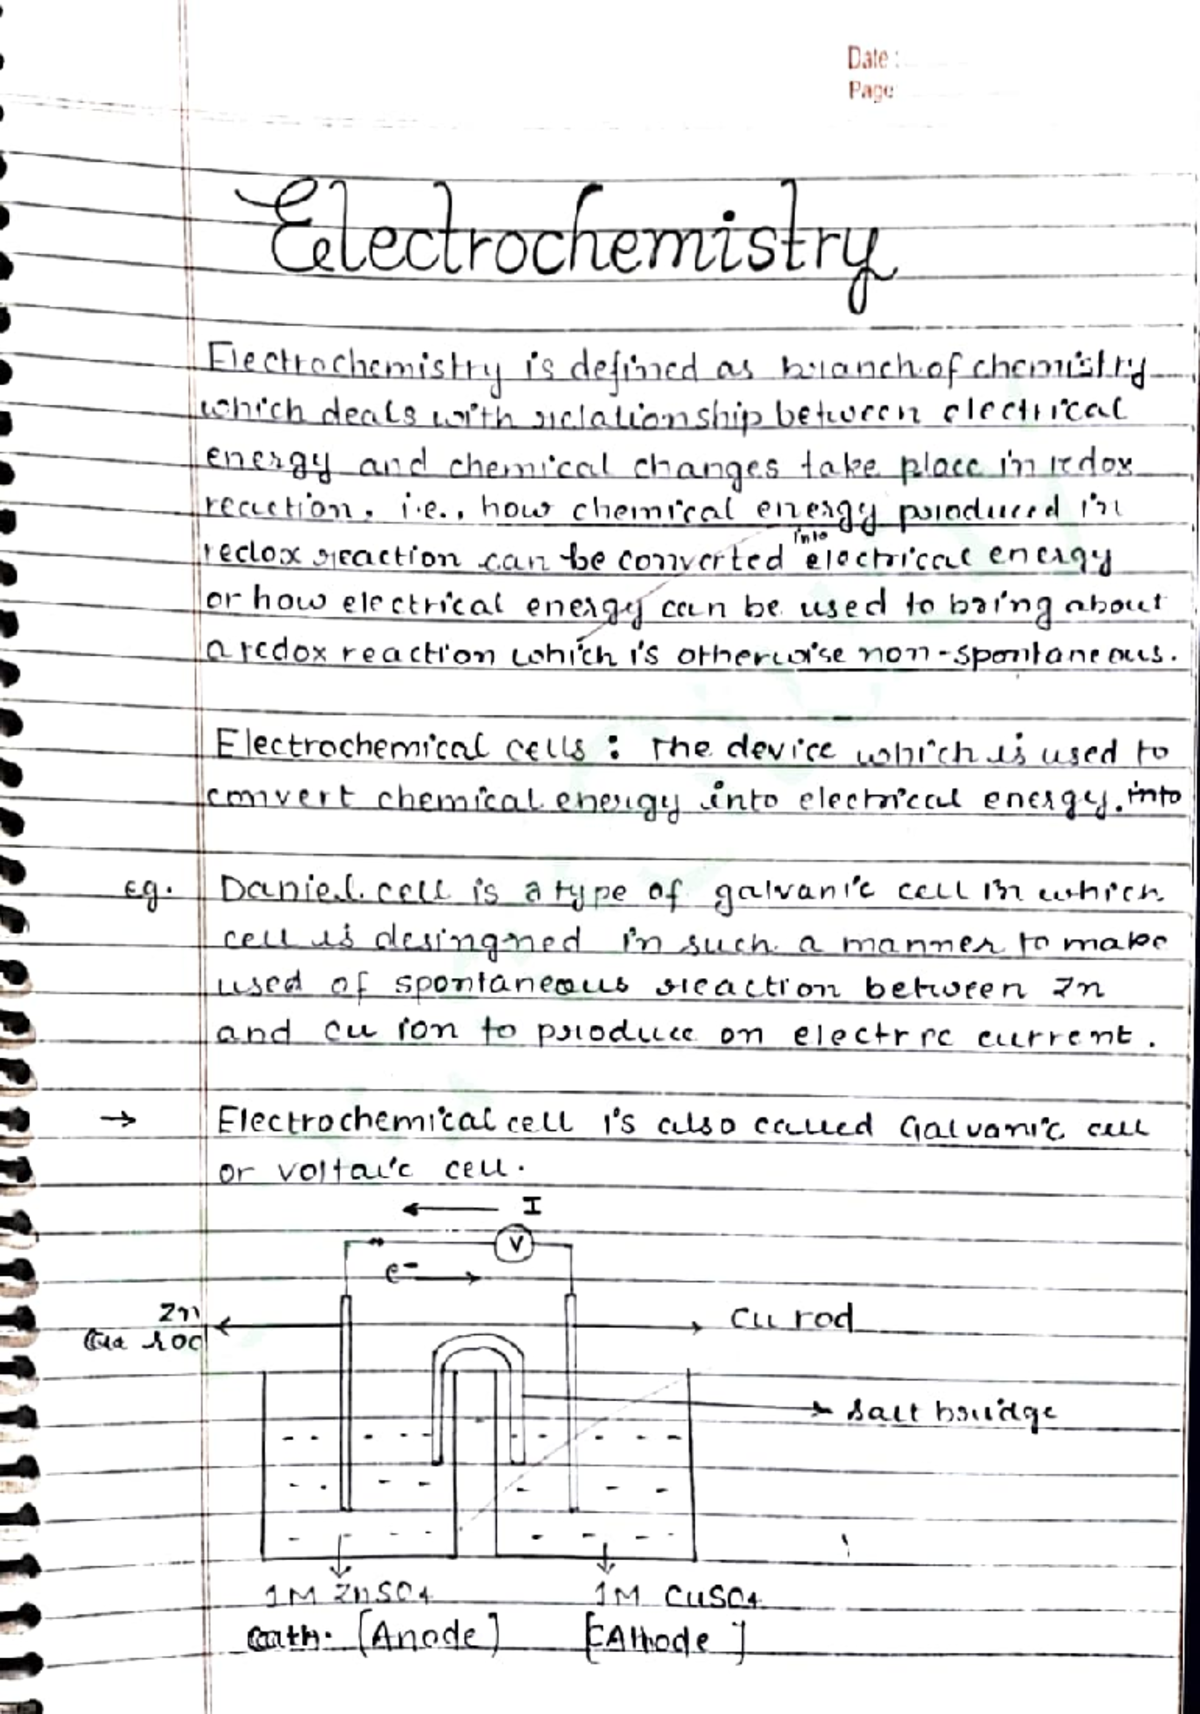 Date :
Page
Electrochemistry
Electrochemistry is defined as branch of chemistry
which deals with relationship between electrical
energy and chemical changes take place in redox
reaction, i.e., how chemical energy produced in
redox reaction can be converted into electrical energy
or how electrical energy can be used to bring about
a redox reaction which is otherwise non-spontaneous.
Electrochemical cells : The device which is used to
convert chemical energy into electrical energy. into
Eg. Daniel cell is a type of galvanic cell in which
cell is desingned in such a manner to make
used of spontaneous reaction between Zn
and Cu ion to produce on electric current.
→ Electrochemical cell is also called Galvanic cell
or voltaic cell.
I
V
e-
Zn
rod
Cu rod
salt bridge
1M ZnSO4
1M CuSO4
[Anode]
[CAthode]